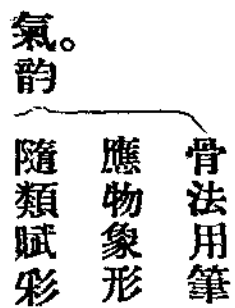 氣。韵
骨法用筆
應物象形
隨類賦彩